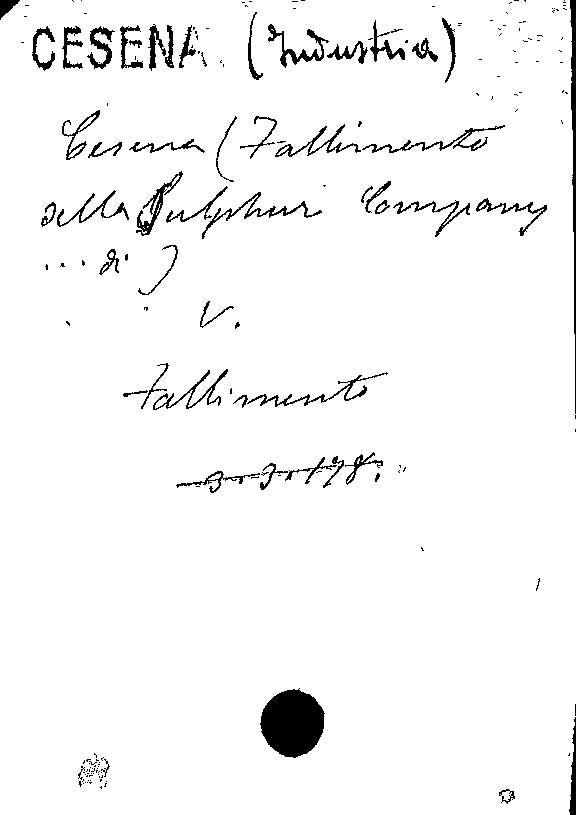 CESENA (Industria)
Cesena (Fallimento
della Sulphur Company
... di)
V.
Fallimento
3.3.178.